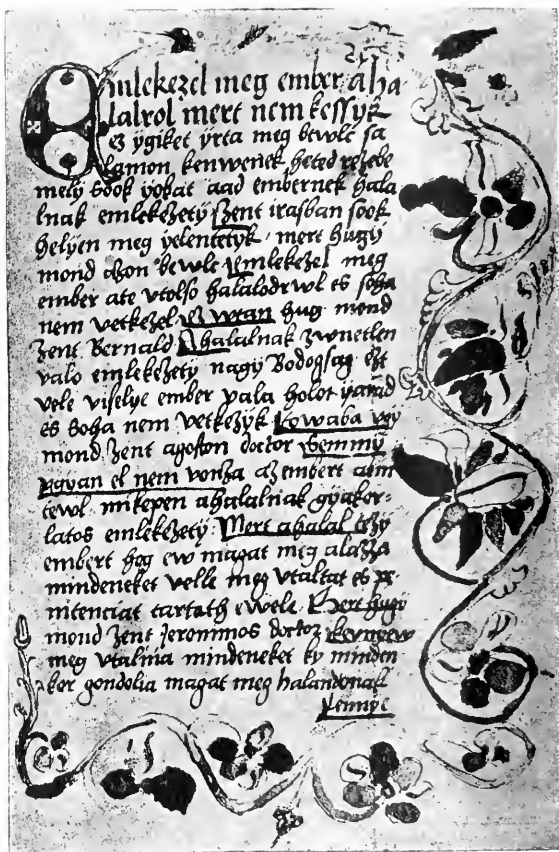 Emlekezel meg ember a ha
lalrol mert nem kessyk
Ez ygiket yrta meg bewlc sa
lamon kenwenek heted rezebe
mely Sook yokat aad embernek hala
lnak emlekezety Szent irasban sook
helyen meg yelentetyk mert hugy
mond azon bewlc Emlekezel meg
ember ate vtolso halalodrwl es soha
nem vetkezel Ez vtan hug mond
Zent Bernald A halalnak zwnetlen
valo emlekezety nagy Bodogsag Ezt
vele viselye ember vala holot yarad
es Soha nem Vetkezyk Towaba vgy
mond Zent agoston doctor Semmy
vgyan el nem vonza az embert a bin
tewol mikepen a halalnak gyakor
latos emlekezety Mert a halal tezy
embert hog ew magat meg alazza
mindeneket velle meg vtaltat es pe
nitenciat tartath ewele Mert hugy
mond Zent Jeronimos doctor Kenyew
meg vtalnia mindeneket ky minden
kor gondolia magat meg halandonak
Lennye